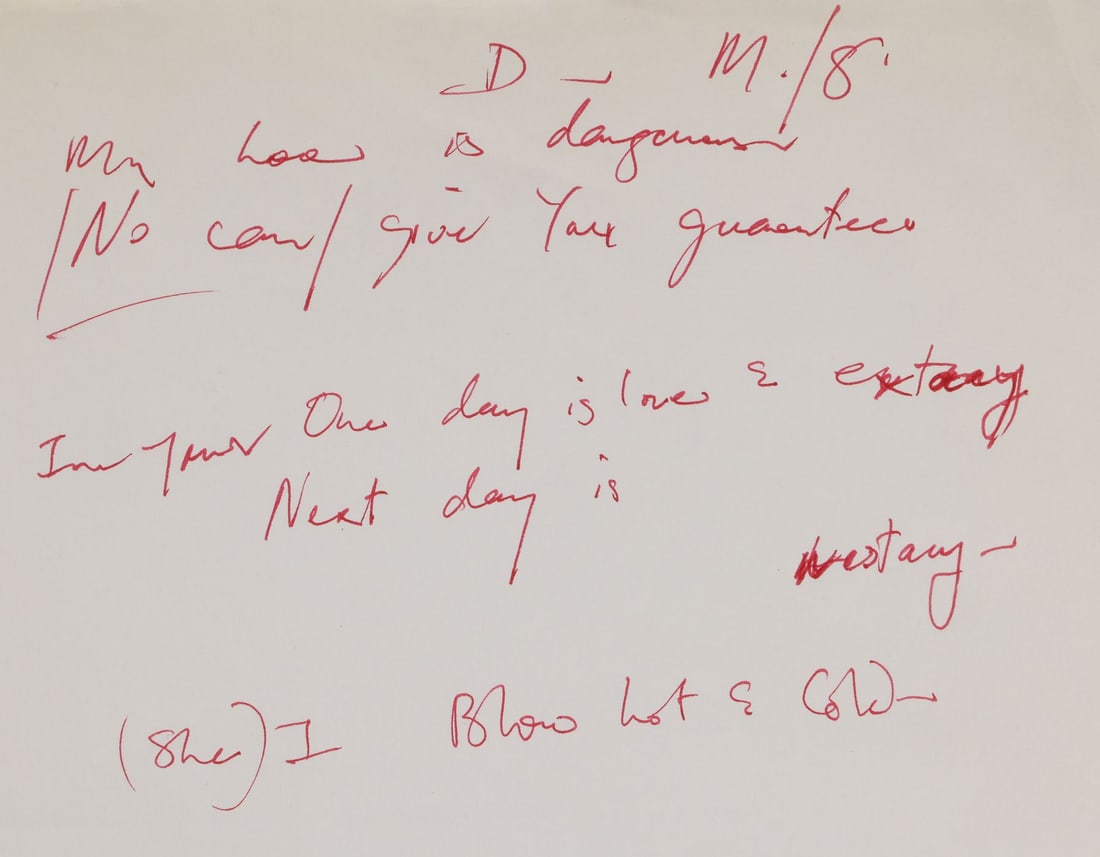 D - M./8.
My love is dangerous
/No can/ give You guarantee
In your One day is love & extacy
Next day is
extacy -
(She) I Blow hot & Cold -